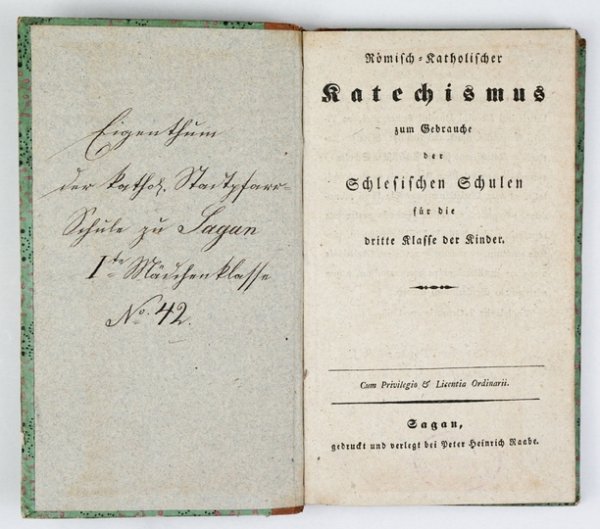 Eigenthum
der kathol. Stadtpfarr-
Schule zu Sagan
Ite Mädchenklasse
No. 42.
Römisch-Katholischer
Katechismus
zum Gebrauche
der
Schlesischen Schulen
für die
dritte Klasse der Kinder.
Cum Privilegio & Licentia Ordinarii.
Sagan,
gedruckt und verlegt bei Peter Heinrich Raabe.